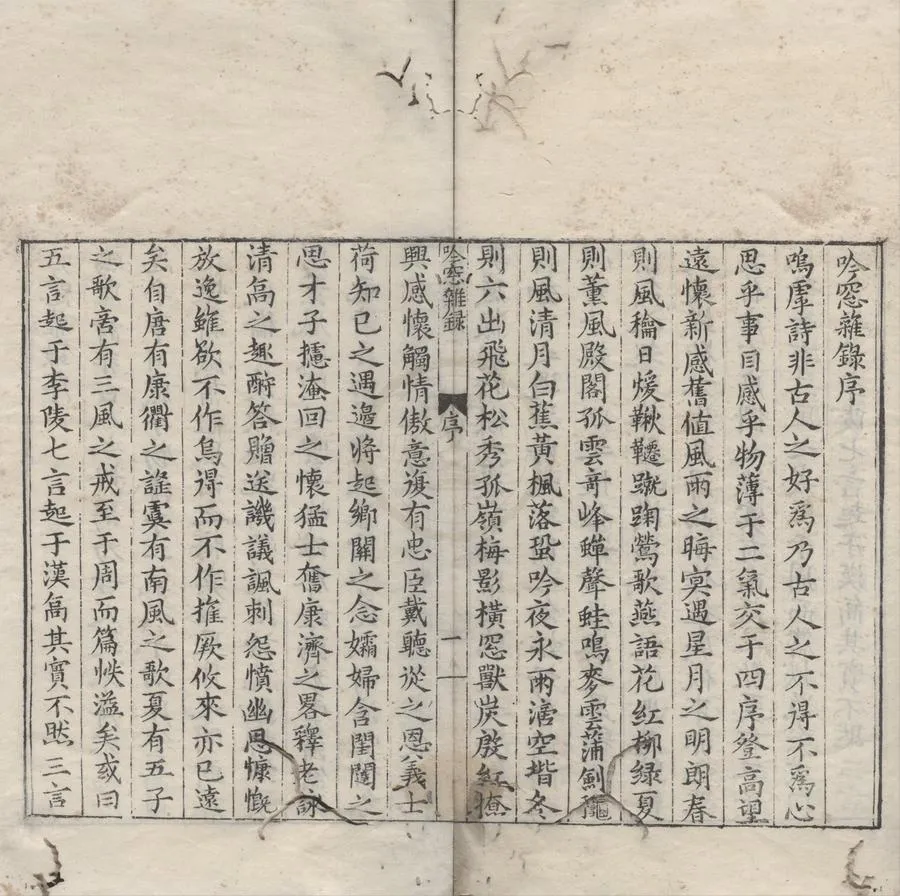 吟窓雜錄序
嗚虖詩非古人之好爲乃古人之不得不爲心
思乎事目感乎物薄于二氣交于四序登高望
遠懷新感舊值風雨之晦㝠遇星月之明朗春
則風穐日煖鞦韆蹴踘鶯歌燕語花紅柳緑夏
則薫風殿閣孤雲竒峰蟬聲蛙鳴麥雲蒲劍龝
則風清月白蕉黃楓落蛩吟夜永雨滴空堦冬
則六出飛花松秀孤嶺梅影橫窓獸炭殷紅
吟窓雜録
序
一
興感懷觸情傲意復有忠臣戴聽從之恩義士
荷知己之遇邉將起鄉關之念孀婦含閨闥之
思才子攄淹回之懷猛士奮康濟之畧釋老詠
清高之趣酧答贈送譏議諷刺怨憤幽思慷慨
放逸雖欲不作烏得而不作推厥攸來亦已遠
矣自唐有康衢之謡虞有南風之歌夏有五子
之歌啇有三風之戒至于周而篇帙溢矣或曰
五言起于李陵七言起于漢𣅿其實不然三言